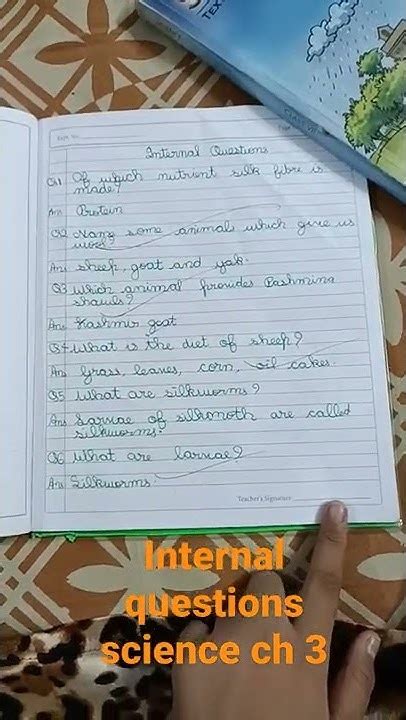 TEX
Internal Questions
Q1 Of which nutrient silk fibre is
made?
Ans Protein
Q2 Name some animals which give us
wool?
Ans sheep, goat and yak.
Q3 Which animal provides Pashmina
shawls?
Ans Kashmir goat
Q4 What is the diet of sheep?
Ans Grass, leaves, corn, oil cakes.
Q5 What are silkworms?
Ans Larvae of silkmoth are called
silkworms.
Q6 What are larvae?
Ans Silkworms.
Teacher's Signature
Internal
questions
science ch 3